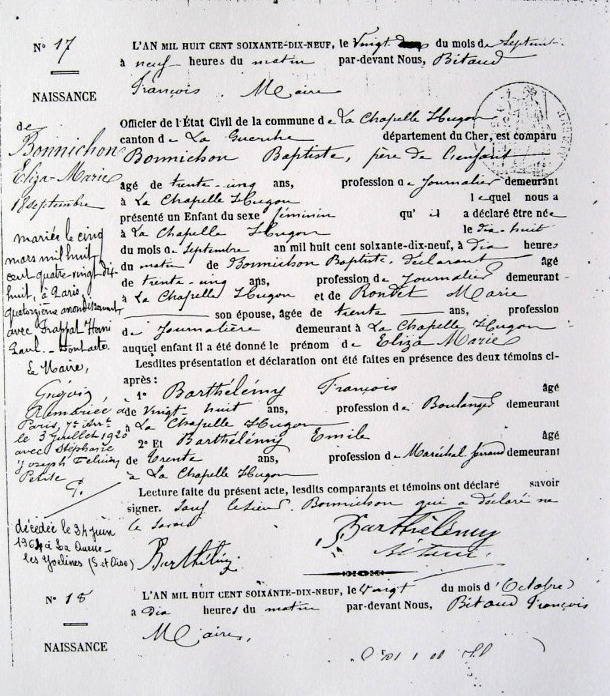 N° 17
NAISSANCE
de
Bonnichon
Eliza-Marie
18 septembre
mariée le cinq
mars mil huit
cent quatre-vingt-dix
huit, à Paris
quatorzième arrondissement
avec Frappat Henri
Le Maire,
Remariée à
Paris, 7e Arrt
le 3 Juillet 1920
avec Stéphane
Joseph Félicien
Petite
décédée le 24 juin
1964 à La Queue-
les-Yvelines (S. et Oise)
L'AN MIL HUIT CENT SOIXANTE-DIX-NEUF, le Vingt du mois de Septembre
à neuf heures du matin par-devant Nous, Bitaud
François Maire
Officier de l'État Civil de la commune de La Chapelle Hugon
canton de La Guerche département du Cher, est comparu
Bonnichon Baptiste, père de l'enfant
âgé de trente-un ans, profession de Journalier demeurant
à La Chapelle Hugon lequel nous a
présenté un Enfant du sexe féminin qu'il a déclaré être née
à La Chapelle Hugon le dix-huit
du mois de Septembre an mil huit cent soixante-dix-neuf, à Dix heures
du matin de Bonnichon Baptiste, déclarant âgé
de trente-un ans, profession de Journalier demeurant
à La Chapelle Hugon et de Rondet Marie
son épouse, âgée de trente ans, profession
de Journalière demeurant à La Chapelle Hugon
auquel enfant il a été donné le prénom de Eliza Marie
Lesdites présentation et déclaration ont été faites en présence des deux témoins ci-
après :
1° Barthélémy François âgé
de vingt-huit ans, profession de Boulanger demeurant
à La Chapelle Hugon
2° Et Barthélémy Emile âgé
de trente ans, profession de Maréchal ferrand demeurant
à La Chapelle Hugon
Lecture faite du présent acte, lesdits comparants et témoins ont déclaré savoir
signer. Sauf le sieur Bonnichon qui a déclaré ne
le savoir
Barthélémy
Barthélémy
N° 18
NAISSANCE
L'AN MIL HUIT CENT SOIXANTE-DIX-NEUF, le Vingt du mois d'Octobre
à Dix heures du matin par-devant Nous, Bitaud François
Maire,